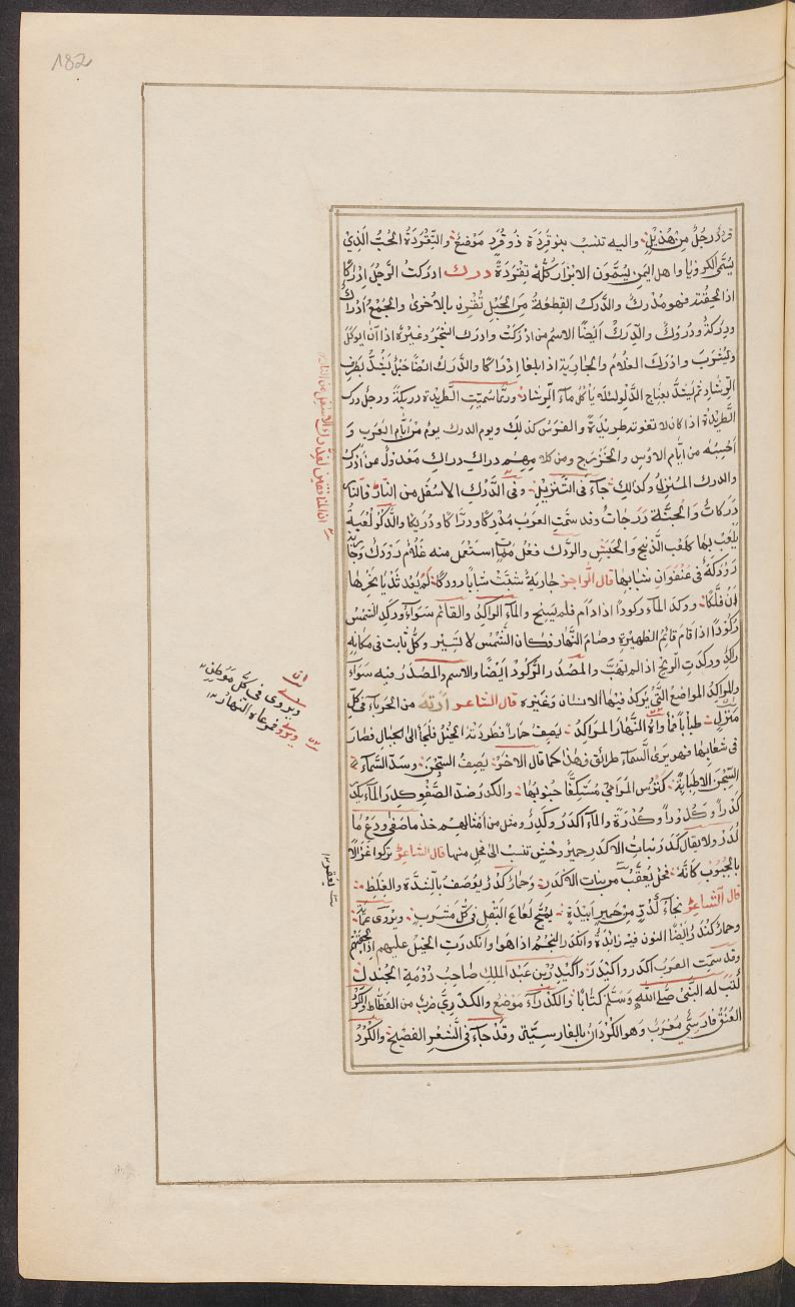 182
قرد رجل من هذيل واليه تنسب بنو قردة ذو قرد موضع والتقردة الحب الذي
يسمى الكرويا واهل اليمن يسمون الابزار كله تقردة درك ادركت الرجل ادراكا
اذا لحقته فهو مدرك والدرك القطعة من الحبل تقرن بالاخرى والجمع ادراك
ودركة ودروك والدرك ايضا الاسم من ادركت وادرك الثمر وغيره اذا آن ان يوكل
ويشرب وادرك الغلام والجارية اذا بلغا ادراكا والدرك ايضا حبل يشد بطرف
الرشاء ثم يشد بعناج الدلو لئلا ياكل ماء الرشاء وربما سميت الطريدة دريكة ورجل درك
الطريدة اذا كان لا تفوته طريدة والفرس كذلك ويوم الدرك يوم من ايام العرب و
احسبه من ايام الاوس والخزرج ومن كلامهم دراك دراك معدول عن ادرك
والدرك المنزلة وكذلك جاء في التنزيل وفي الدرك الاسفل من النار فالنار
دركات والجنة درجات وقد سمت العرب مدركا ودراكا ودريكا والدكر لعبة
يلعب بها كلعب الزنج والحبش والردك فعل ممات استعمل منه غلام رودك وجارية
رودكة في عنفوان شبابها قال الراجز جارية شبت شبابا رودكا لم يعد ثديا نحرها
ان فلكا وركد الماء ركودا اذا دام فلم يسح والماء الراكد والقائم سواء وركد الشمس
ركودا اذا قام قائم الظهيرة وصام النهار فكان الشمس لا تسير وكل ثابت في مكانه
راكد وركدت الريح اذا لم تهب والمصدر الركود ايضا والاسم والمصدر فيه سواء
والمراكد المواضع التي يركد فيها الانسان وغيره قال الشاعر أرته من الجرباء في كل
منزل طبابا فمأواه النهار المراكد يصف حمارا طردته الخيل فلجأ الى الجبال فصار
في شعابها فهو يرى السماء طرائق فهذا كما قال الاخر يصف السجن وسد السماء
السجن الا طبابة كترس المرامي مستكفا جنوبها والكدر ضد الصفو كدر الماء يكدر
كدرا وكدورا وكدرة والماء اكدر وكدر ومثل من امثالهم خذ ما صفى ودع ما
كدر ولا يقال كدر وبنات الاكدر حمير وحش تنسب الى فحل منها قال الشاعر تركوا غزالا
بالجبوب كانه فحل يعقب من بنات الاكدر وحمار كدر يوصف بالشدة والغلظ
قال الشاعر نجاء كدر من حمير ابيدة يمج لعاع البقل في كل مشرب ويروى
وحمار كندر ايضا النون فيه زائدة وانكدر النجم اذا هوى وانكدرت الخيل عليهم اذا لحقتهم
وقد سمت العرب اكدر واكيدر واكيدر بن عبد الملك صاحب دومة الجندل
كتب له النبي صلى الله وسلم كتابا والكدراء موضع والكدري ضرب من القطاط والكرد
العنق فارسي معرب وهو الكردان بالفارسية وقد جاء في الشعر الفصيح والكرد
ان المنافقين لفي الدرك الاسفل من النار
ويروى في كل موطن
ويروى فمرعاه النهار
يعقر